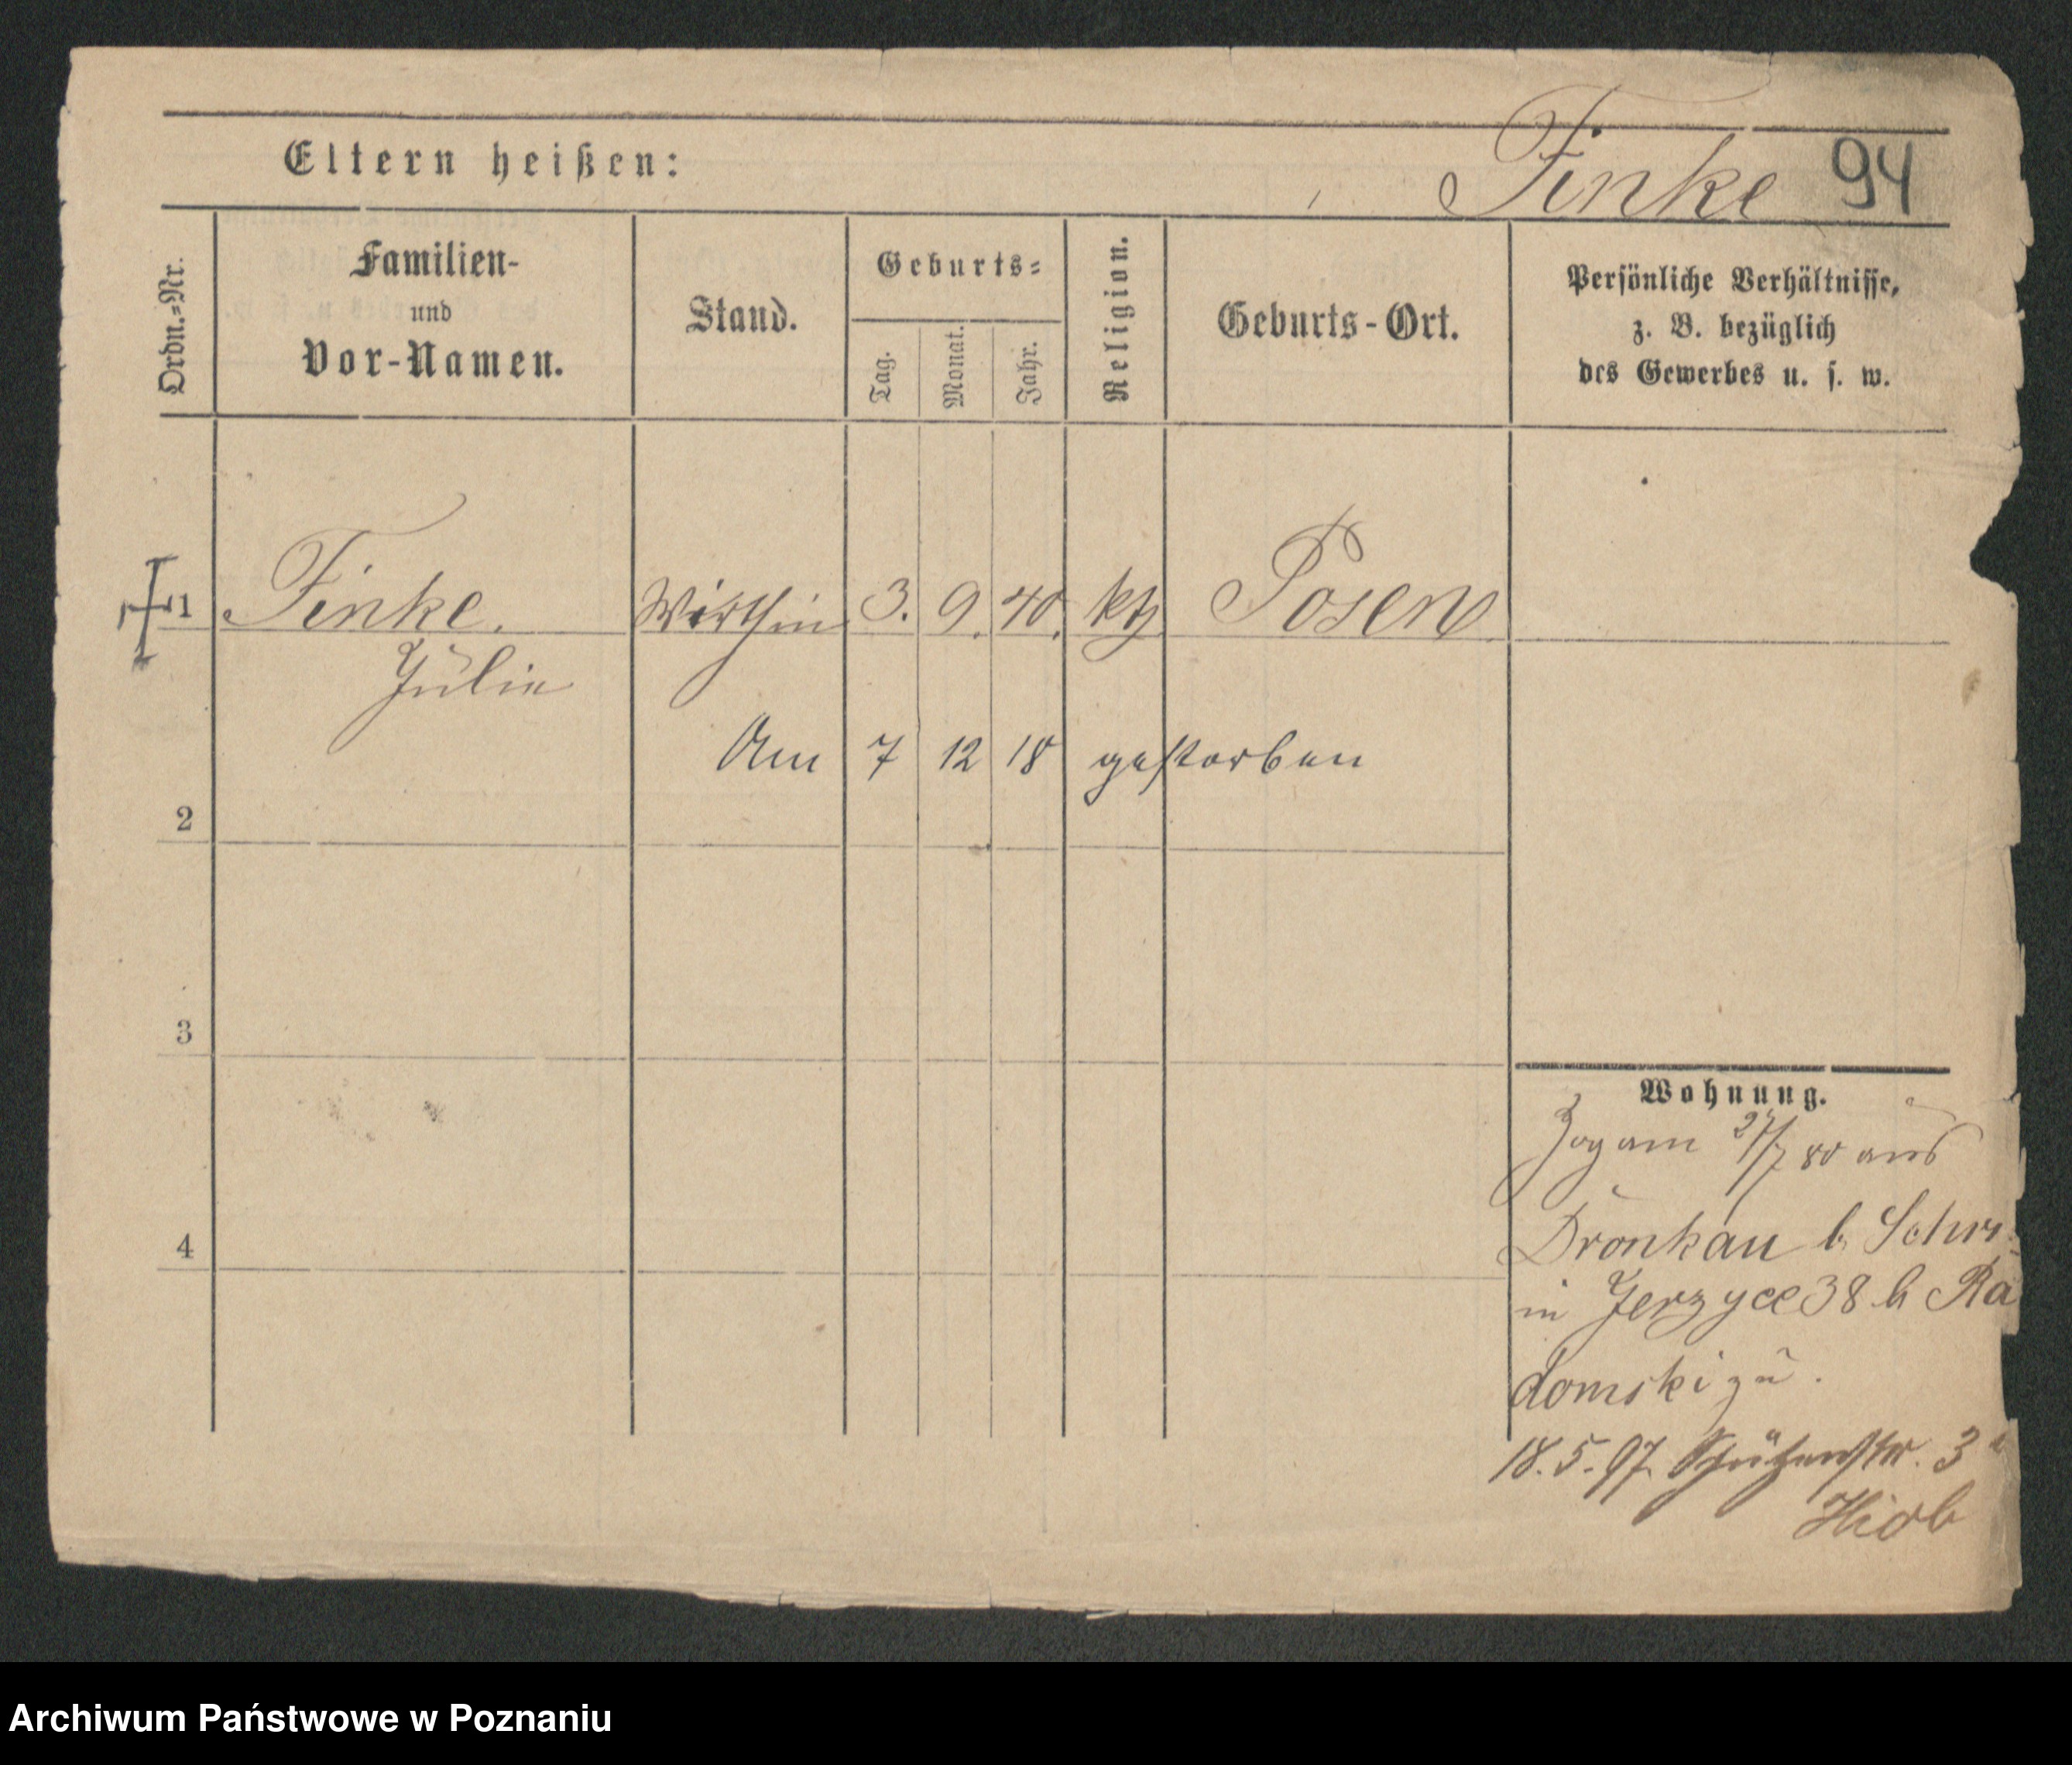 Eltern heißen:
Finke 94
Ordn.-Nr.
Familien-
und
Vor-Namen.
Stand.
Geburts-
Tag.
Monat.
Jahr.
Religion.
Geburts-Ort.
Persönliche Verhältnisse,
z. B. bezüglich
des Gewerbes u. s. w.
1 Finke. Wirthin 3. 9. 40. kth Posen
Julie
Am 7 12 18 gestorben
2
3
4
Wohnung.
Zog am 27/7 80 aus
Dronkau b. Schr
in Jerzyce 38 b Ra
domski zu.
18. 5. 97. Schützenstr. 3
Hiob
Archiwum Państwowe w Poznaniu